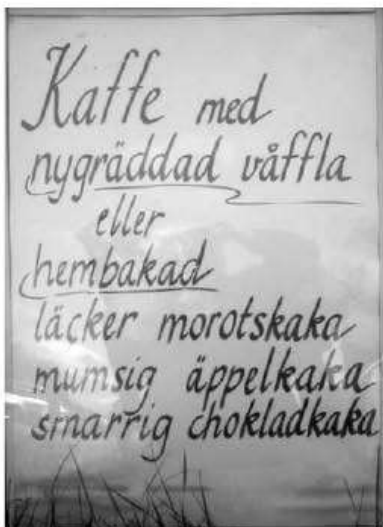 Kaffe med
nygräddad våffla
eller
hembakad
läcker morotskaka
mumsig äppelkaka
smarrig chokladkaka